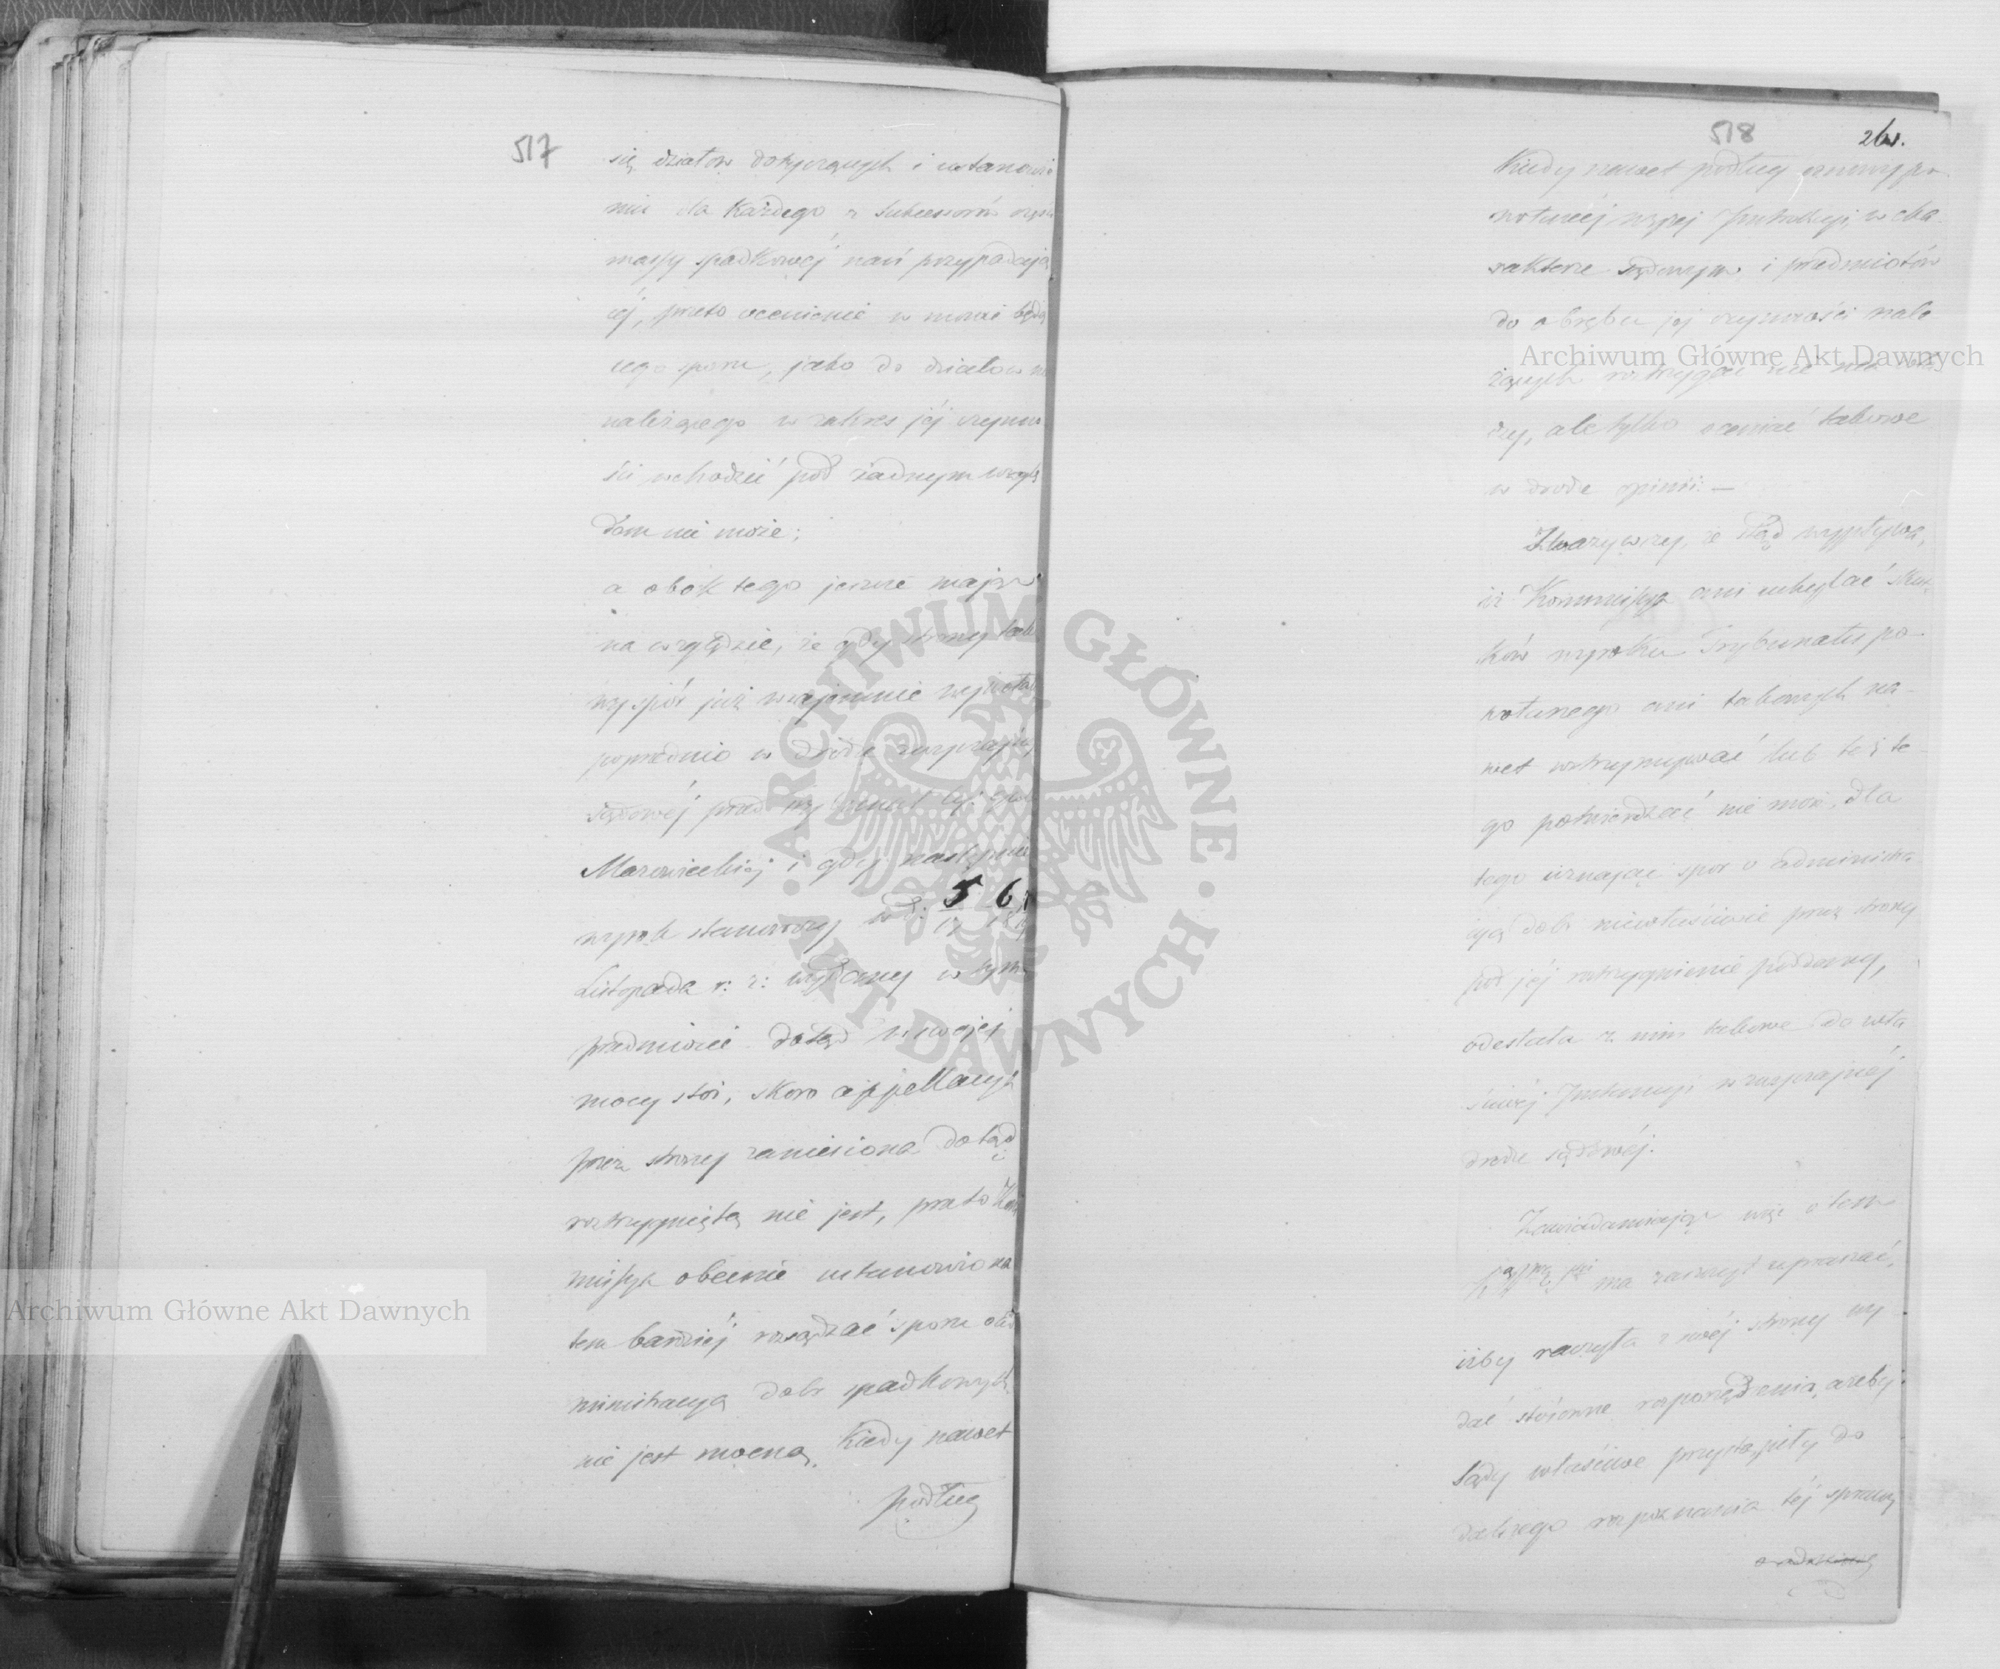 517
się działów dotyczących i ustanowie
nia dla każdego z sukcessorów
massy spadkowéj nań przypadają
céj, przeto ocenienie w mowie będą
cego sporu, jako do działów nie
należącego w zakres jéj czynno
ści wchodzić pod żadnym wzglę
dem nie może;
a obok tego jeszcze mając
na względzie, że gdy strony
spór już wzajemnie
poprzednio w drodze zwyczajnéj
sądowéj przed Trybunał
Mazowieckiéj i gdy następnie
wyrok stanowczy w d: 5 6
Listopada r: z: wydany w tym
przedmiocie dotąd w swojej
mocy stoi, skoro appellacya
przez strony zaniesiona dotąd
rozstrzygniętą nie jest, przeto Kom
missya obecnie ustanowiona
tem bardziéj rozsądzać sporu o ad
ministracyą dóbr spadkowych
nie jest mocną. Kiedy nawet
podług
518
Kiedy nawet podług osnowy po
wołanéj wyżej Instrukcyi, w cha
rakterze sądowym i przedmiotów
do obrębu jej czynności nale
żących rozstrzygać nie
ży, ale tylko oceniać takowe
w drodze opinii: —
Zważywszy, że stąd wypływa,
iż Kommissya ani uchylać skut
ków wyroku Trybunału po
wołanego ani takowych na-
wet wstrzymywać lub też te-
go potwierdzać nie może, dla
tego uznając spór o administra
cyą dóbr niewłaściwie przez strony
pod jéj roztrzygnienie poddany,
odesłała z nim takowe do wła
ściwéj Instancyi w zwyczajnéj
drodze sądowéj.
Zawiadamiając więc o tem
ma zaszczyt upraszać,
iżby raczyła z swéj strony wy
dać stósowne rozporządzenia, ażeby
Sądy właściwe przystąpiły do
dalszego rozpoznania téj sprawy
Archiwum Główne Akt Dawnych
Archiwum Główne Akt Dawnych
ARCHIWUM GŁÓWNE AKT DAWNYCH